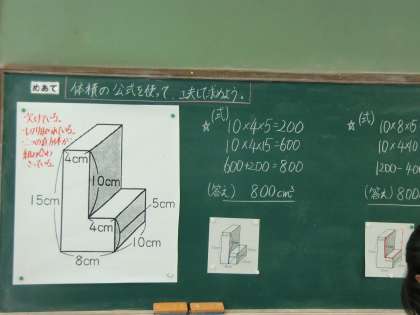 めあて
体積の公式を使って、工夫して求めよう。
4cm
10cm
15cm
5cm
4cm
10cm
8cm
(式)
☆ 10×4×5=200
10×4×15=600
600+200=800
(答え) 800cm³
(式)
☆ 10×8×15
10×4×10
1200-40
(答え) 800